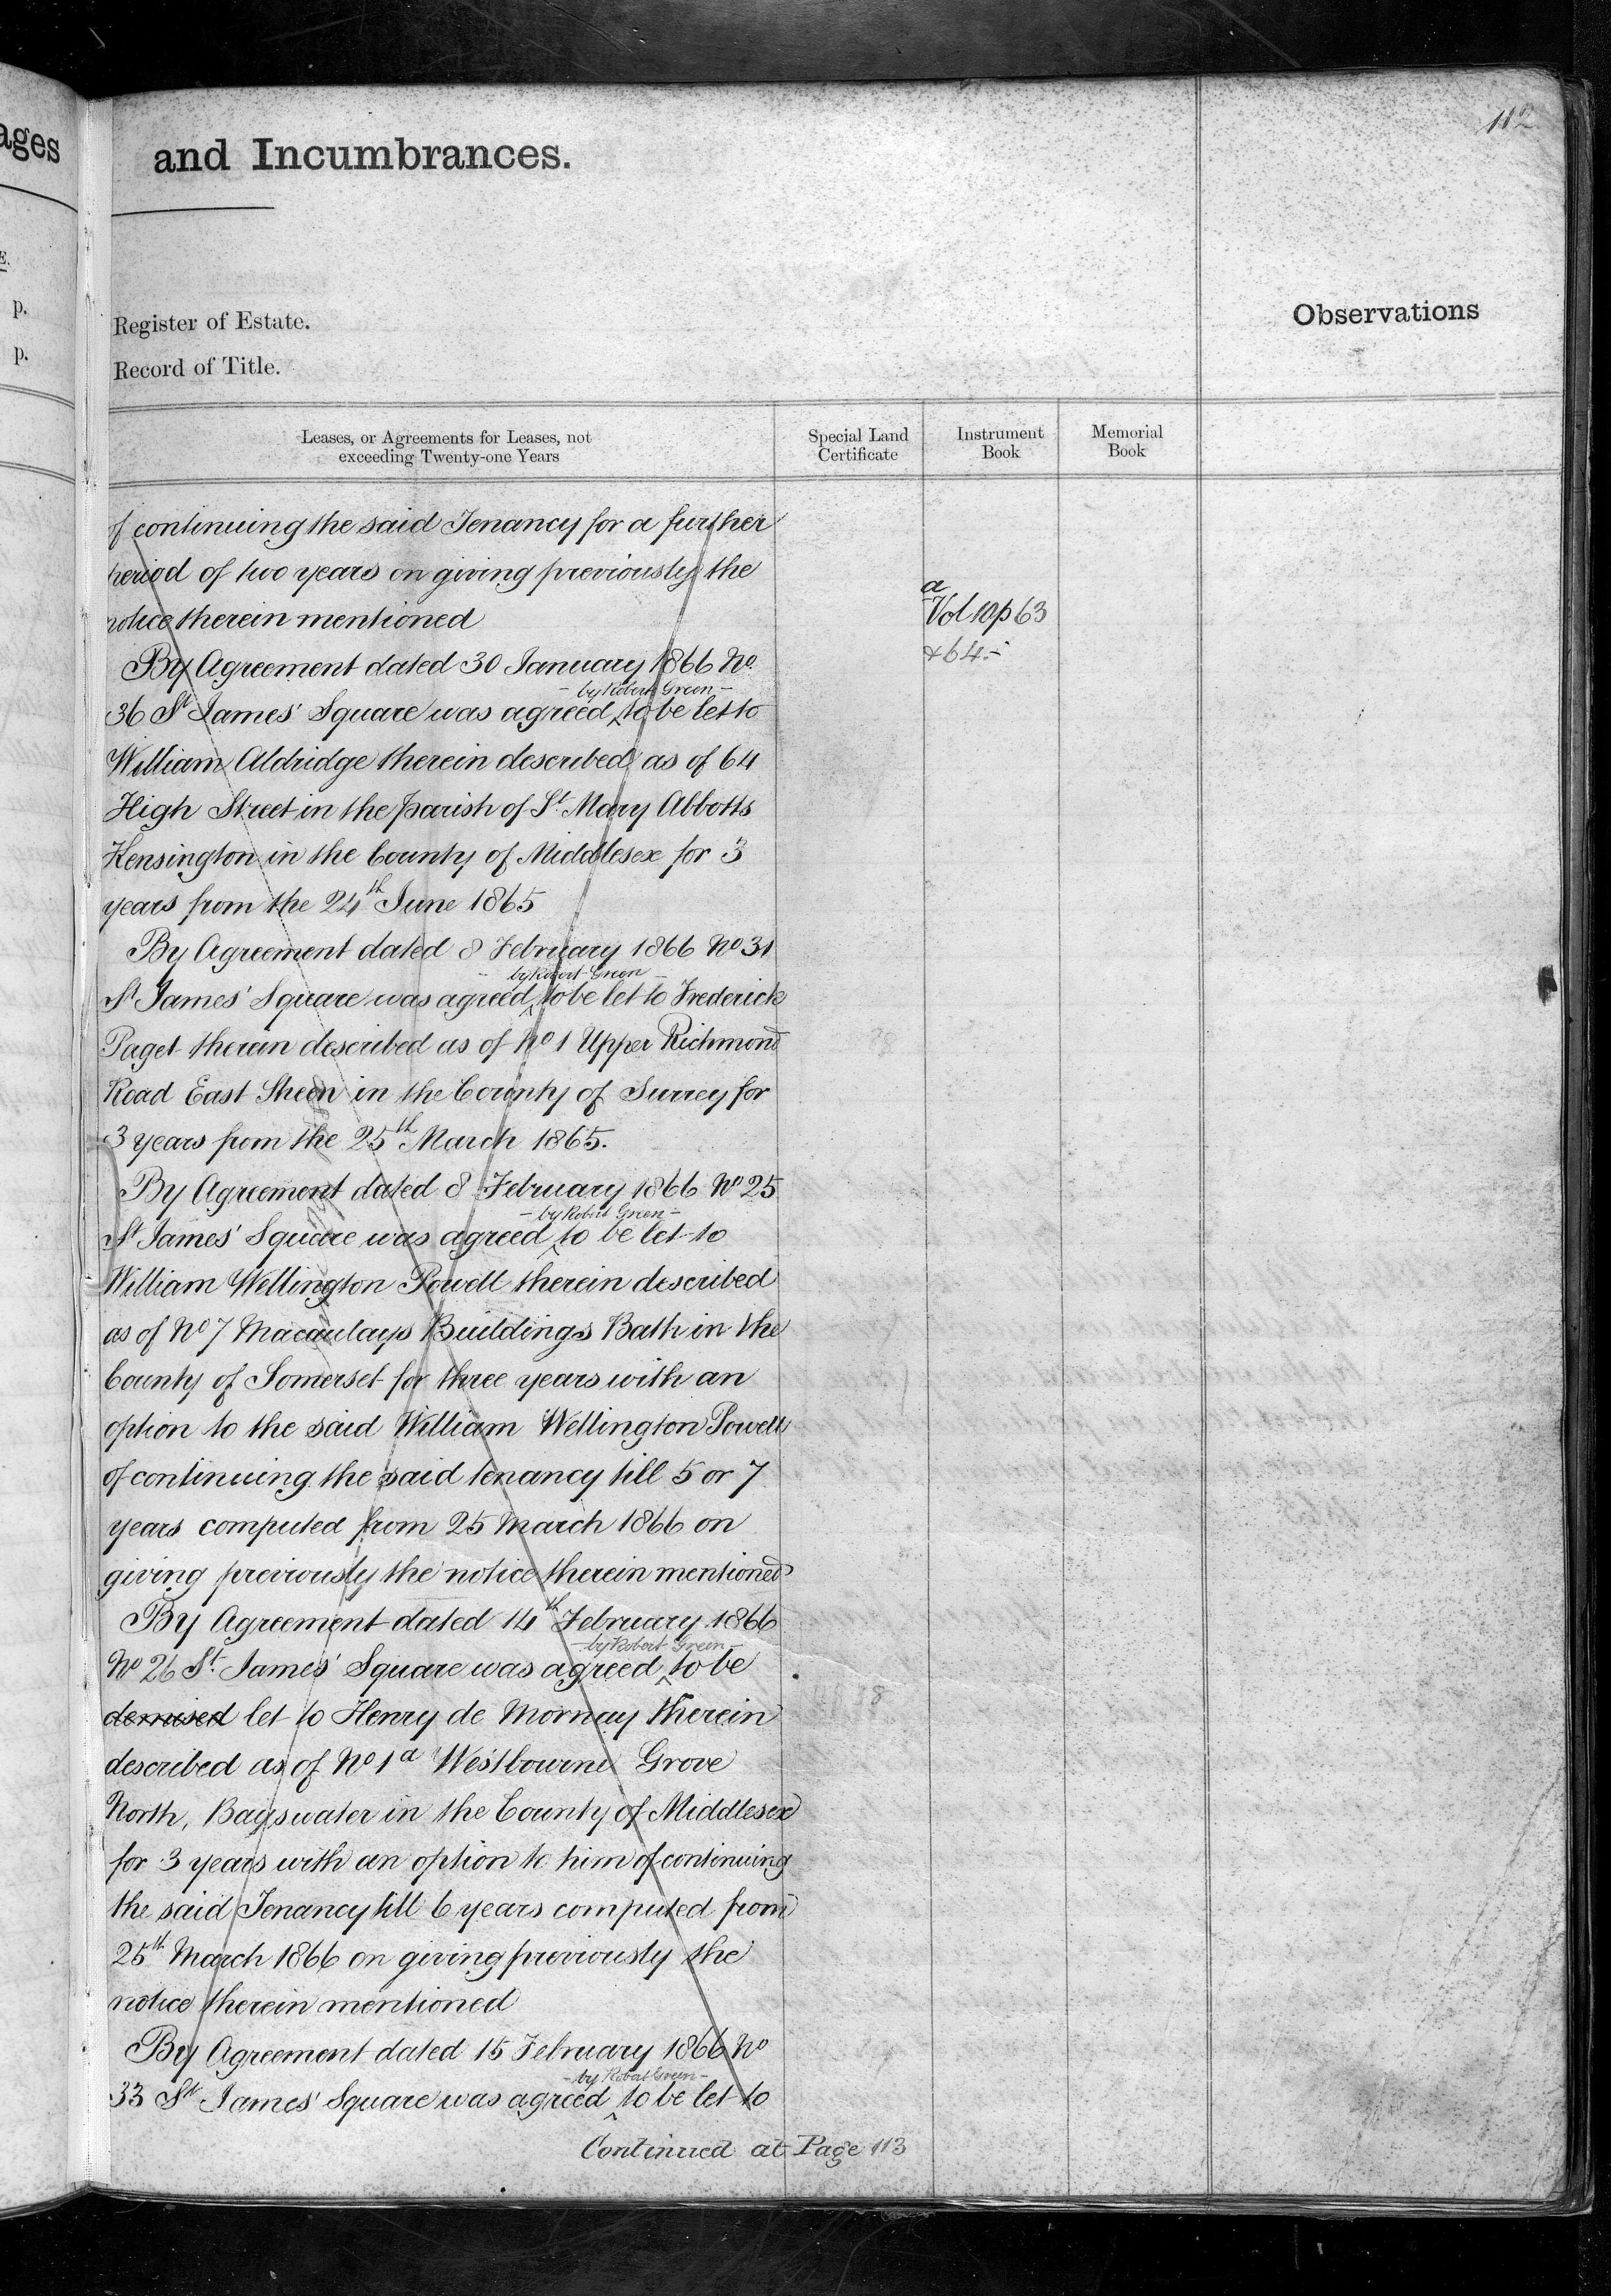 ages
and Incumbrances.
112
E.
p.
p.
Register of Estate.
Record of Title.
Observations
Leases, or Agreements for Leases, not
exceeding Twenty-one Years
Special Land
Certificate
Instrument
Book
Memorial
Book
of continuing the said Tenancy for a further
period of two years on giving previously the
notice therein mentioned
a
Vol 10 p 63
& 64.-
By Agreement dated 30 January 1866 No.
- by Robert Green -
36 St James' Square was agreed ‸ to be let to
William Aldridge therein described as of 64
High Street in the parish of St. Mary Abbotts
Kensington in the County of Middlesex for 3
years from the 24th June 1865
By Agreement dated 8 February 1866 No 31
- by Robert Green -
St James' Square was agreed ‸ to be let to Frederick
Paget therein described as of No 1 Upper Richmond
Road East Sheen in the County of Surrey for
3 years from the 25th March 1865.
By Agreement dated 8 February 1866 No 25
- by Robert Green -
St James' Square was agreed ‸ to be let to
William Wellington Powell therein described
as of No 7 Macaulays Buildings Bath in the
County of Somerset for three years with an
option to the said William Wellington Powell
of continuing the said tenancy till 5 or 7
years computed from 25 March 1866 on
giving previously the notice therein mentioned
By Agreement dated 14th February 1866
- by Robert Green -
No 26 St. James' Square was agreed ‸ to be
demised let to Henry de Mornay therein
described as of No 1a Westbourne Grove
North, Bayswater in the County of Middlesex
for 3 years with an option to him of continuing
the said Tenancy till 6 years computed from
25th March 1866 on giving previously the
notice therein mentioned
By Agreement dated 15 February 1866 No
- by Robert Green -
33 St James' Square was agreed ‸ to be let to
Continued at Page 113